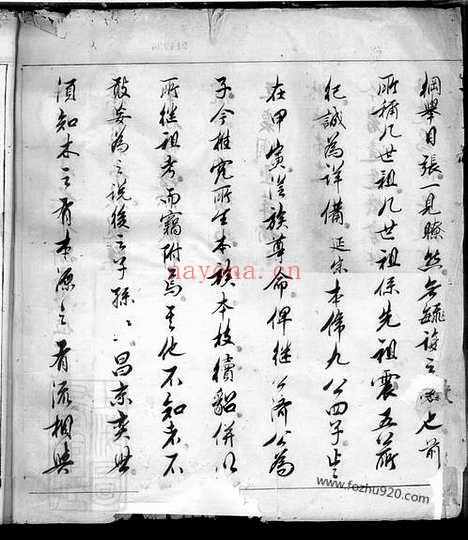 綱舉目張一見瞭然無疏詩之 七前
所稱九世祖九世祖係先祖震五所
紀誠為詳備延宗本係九公四子與
在甲寅從族尊命俾继公濟公為
子今推究所生本族本枝續貂併以
所继祖考而竊附焉其他不知者不
敢妄為之說後之子孫孫昌京奕世
須知木之有本源之有流相與
nayona.cn
www.fozhu920.com